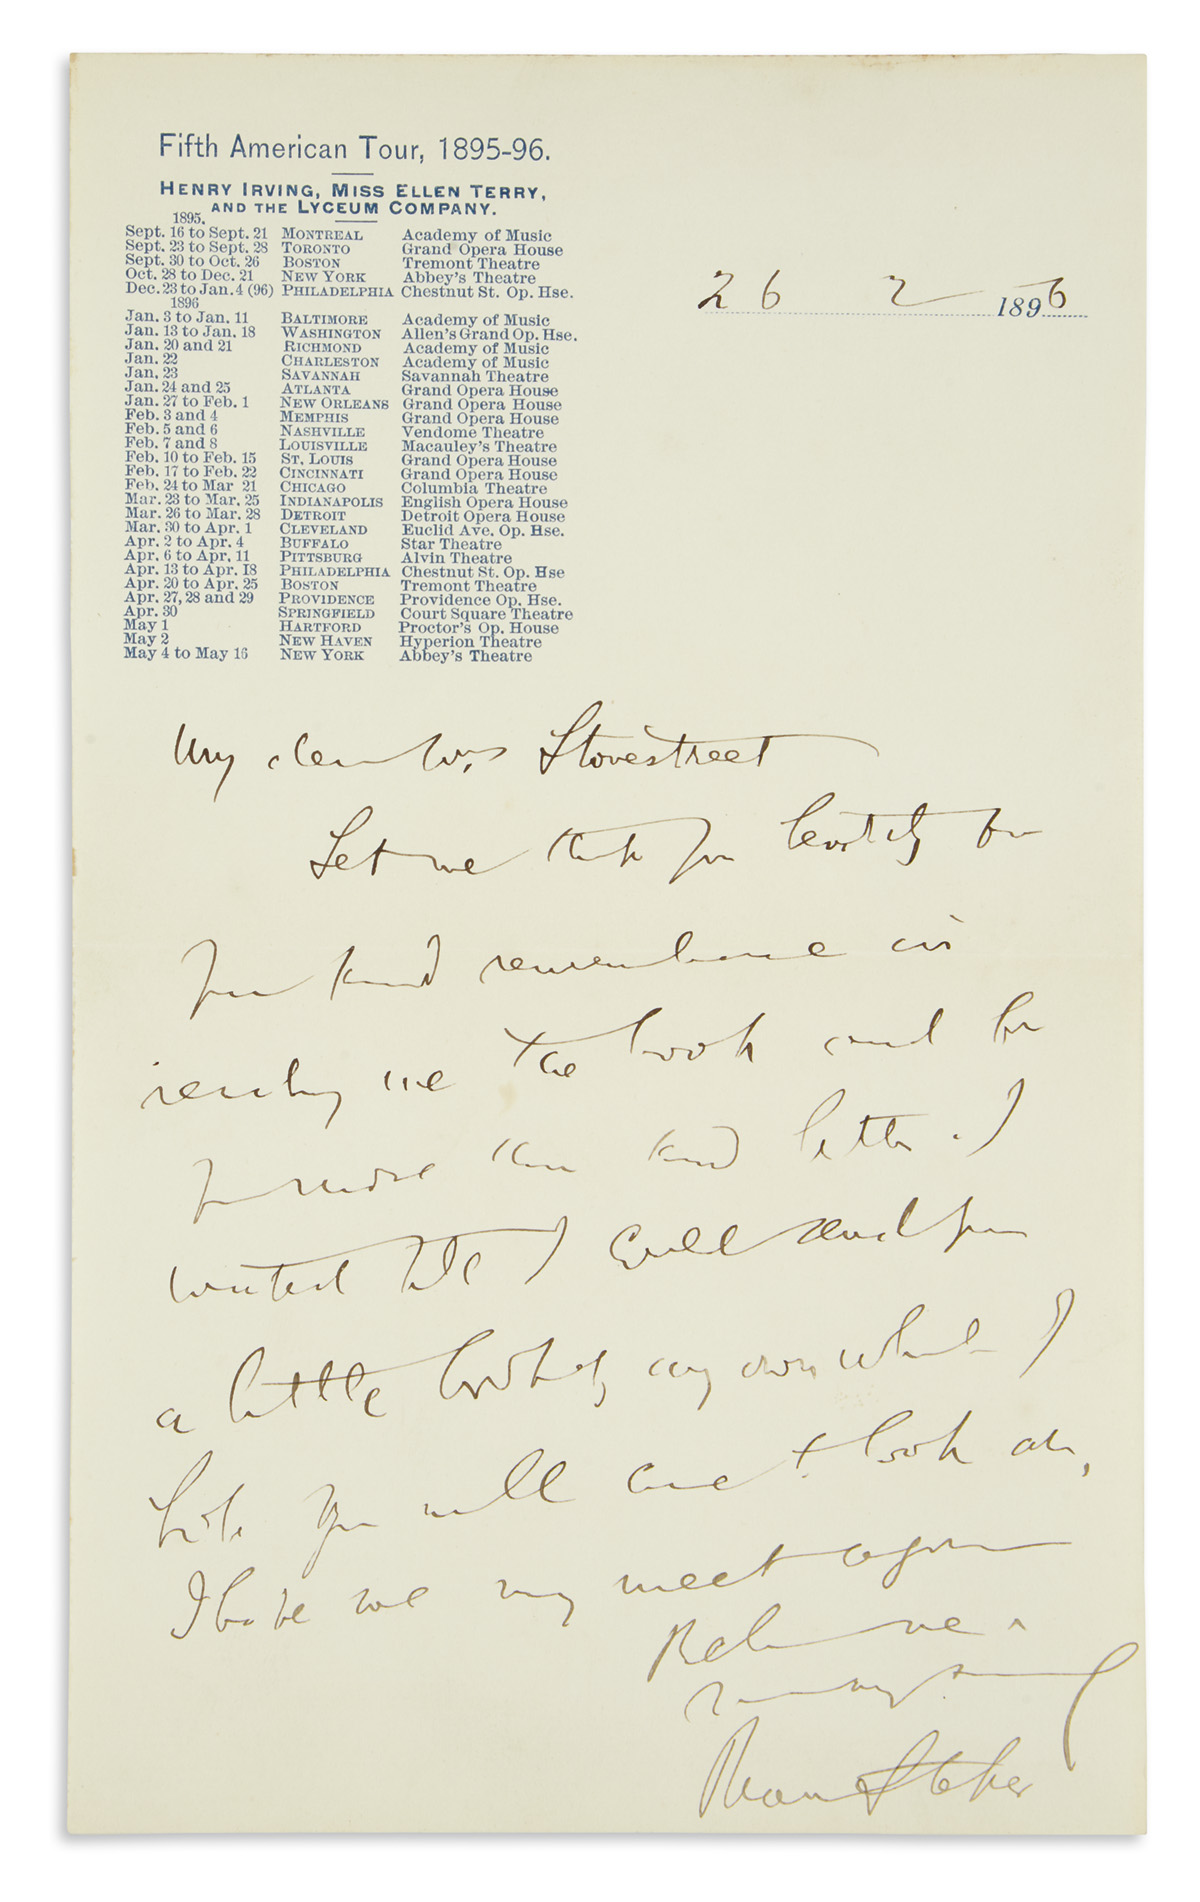 Fifth American Tour, 1895-96.
HENRY IRVING, MISS ELLEN TERRY,
AND THE LYCEUM COMPANY.
1895.
Sept. 16 to Sept. 21 MONTREAL Academy of Music
Sept. 23 to Sept. 28 TORONTO Grand Opera House
Sept. 30 to Oct. 26 BOSTON Tremont Theatre
Oct. 28 to Dec. 21 NEW YORK Abbey's Theatre
Dec. 23 to Jan. 4 (96) PHILADELPHIA Chestnut St. Op. Hse.
1896
Jan. 3 to Jan. 11 BALTIMORE Academy of Music
Jan. 13 to Jan. 18 WASHINGTON Allen's Grand Op. Hse.
Jan. 20 and 21 RICHMOND Academy of Music
Jan. 22 CHARLESTON Academy of Music
Jan. 23 SAVANNAH Savannah Theatre
Jan. 24 and 25 ATLANTA Grand Opera House
Jan. 27 to Feb. 1 NEW ORLEANS Grand Opera House
Feb. 3 and 4 MEMPHIS Grand Opera House
Feb. 5 and 6 NASHVILLE Vendome Theatre
Feb. 7 and 8 LOUISVILLE Macauley's Theatre
Feb. 10 to Feb. 15 ST. LOUIS Grand Opera House
Feb. 17 to Feb. 22 CINCINNATI Grand Opera House
Feb. 24 to Mar 21 CHICAGO Columbia Theatre
Mar. 23 to Mar. 25 INDIANAPOLIS English Opera House
Mar. 26 to Mar. 28 DETROIT Detroit Opera House
Mar. 30 to Apr. 1 CLEVELAND Euclid Ave. Op. Hse.
Apr. 2 to Apr. 4 BUFFALO Star Theatre
Apr. 6 to Apr. 11 PITTSBURG Alvin Theatre
Apr. 13 to Apr. 18 PHILADELPHIA Chestnut St. Op. Hse
Apr. 20 to Apr. 25 BOSTON Tremont Theatre
Apr. 27, 28 and 29 PROVIDENCE Providence Op. Hse.
Apr. 30 SPRINGFIELD Court Square Theatre
May 1 HARTFORD Proctor's Op. House
May 2 NEW HAVEN Hyperion Theatre
May 4 to May 16 NEW YORK Abbey's Theatre
26 2 1896
My dear Mrs Stovestreet
Let me thank you heartily for
your kind remembrance in
sending me the book and for
your more than kind letter. I
waited till I could send you
a little book of my own which I
hope you will care to look at,
I hope we may meet again
Believe me
Bram Stoker